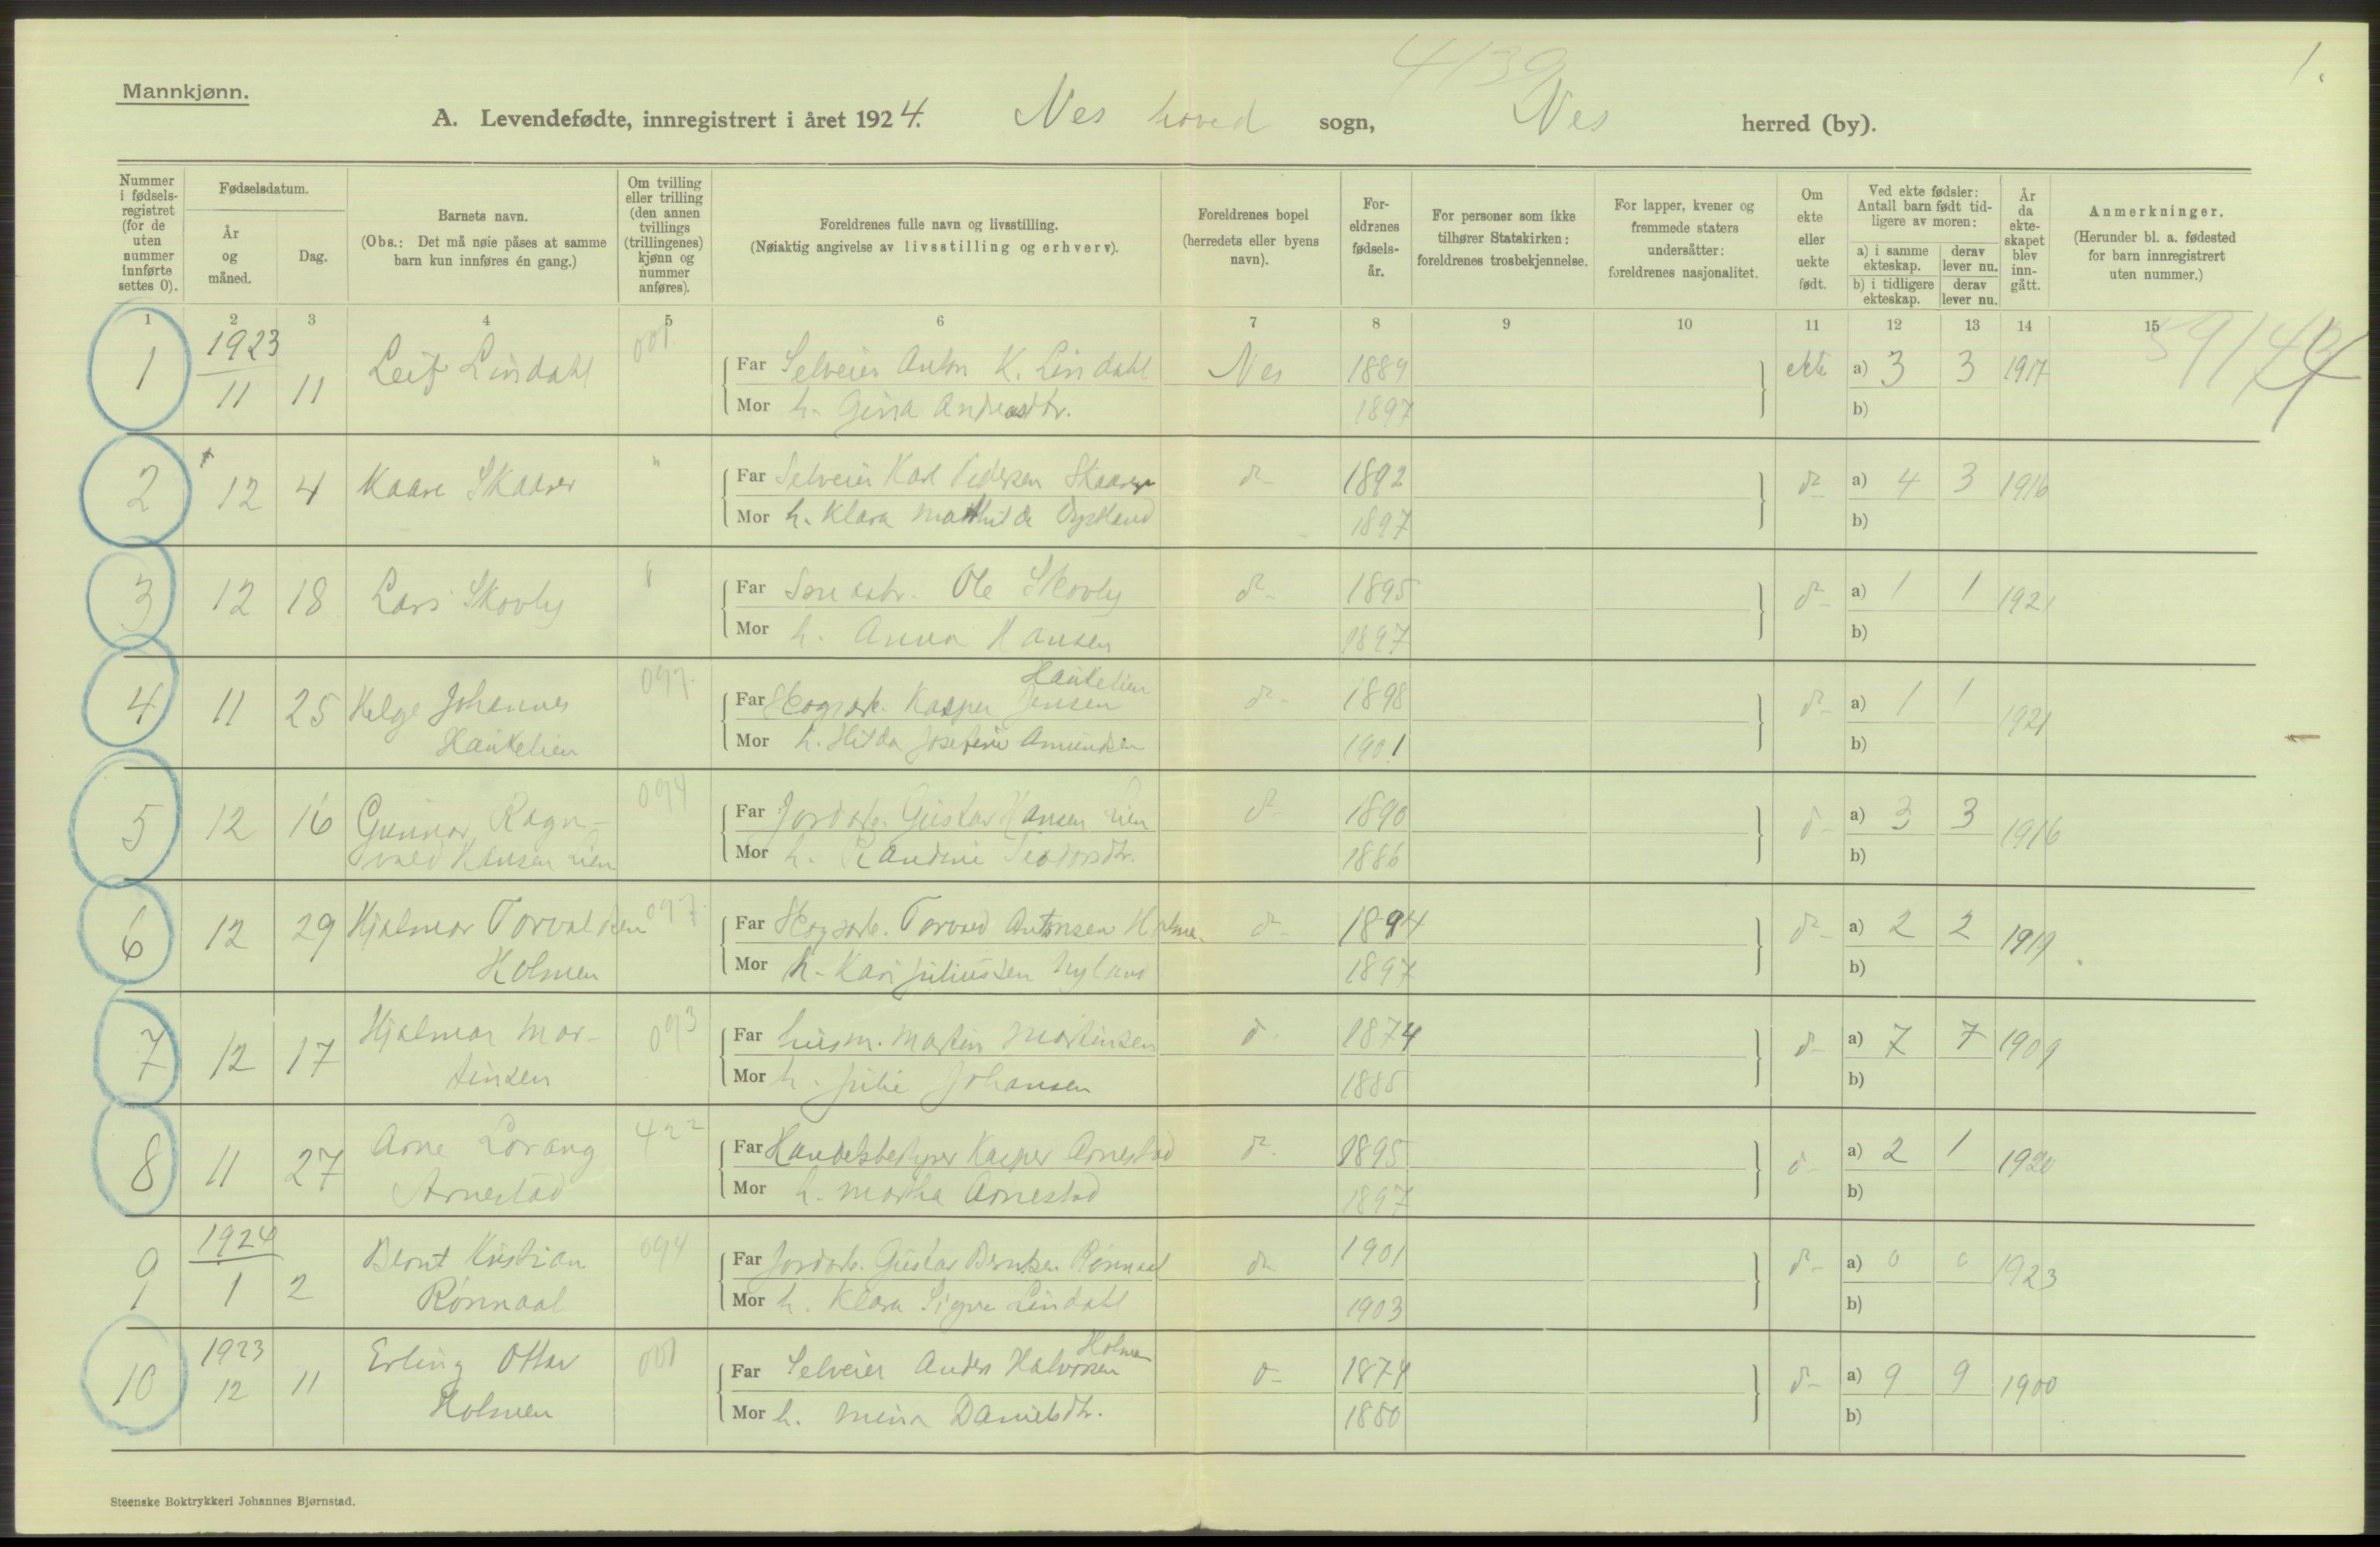 4139
1.
Mannkjønn.
A. Levendefødte, innregistrert i året 1924. Nes hoved sogn, Nes herred (by).
Nummer i fødselsregistret (for de uten nummer innførte settes 0).
Fødselsdatum.
År og måned.
Dag.
Barnets navn.
(Obs.: Det må nøie påses at samme barn kun innføres én gang.)
Om tvilling eller trilling (den annen tvillings (trillingenes) kjønn og nummer anføres).
Foreldrenes fulle navn og livsstilling.
(Nøiaktig angivelse av livsstilling og erhverv).
Foreldrenes bopel (herredets eller byens navn).
For-eldrenes fødsels-år.
For personer som ikke tilhører Statskirken: foreldrenes trosbekjennelse.
For lapper, kvener og fremmede staters undersåtter: foreldrenes nasjonalitet.
Om ekte eller uekte født.
Ved ekte fødsler: Antall barn født tidligere av moren:
a) i samme ekteskap. derav lever nu.
b) i tidligere ekteskap. derav lever nu.
År da ekte-skapet blev inn-gått.
Anmerkninger.
(Herunder bl. a. fødested for barn innregistrert uten nummer.)
1 2 3 4 5 6 7 8 9 10 11 12 13 14 15
1 1923 11 11 Leif Lindahl 001 Far Selveier Anton K. Lindahl Nes 1889 ekte a) 3 3 1917
Mor h. Gina Andreasdtr. 1897 b)
2 12 4 Kaare Skaarer " Far Selveier Karl Pedersen Skaarer d- 1892 d- a) 4 3 1916
Mor h. Klara Mathilde 1897 b)
3 12 18 Lars Skovly " Far Ole Skovly d- 1895 d- a) 1 1 1921
Mor h. Anna Hansen 1897 b)
4 11 25 Helge Johannes 097 Far Skogsarb. Kasper Jensen Haukelien d- 1898 d- a) 1 1 1921
Haukelien Mor h. Hilda Josefine Amundsen 1901 b)
5 12 16 Gunnar Ragn- 094 Far Jordarb. Gustav Hansen Lien d- 1890 d- a) 3 3 1916
vald Hansen Lien Mor h. Randine Teodorsdtr. 1886 b)
6 12 29 Hjalmar Torvaldsen 097 Far Skogsarb. Torvald Antonsen Holme- d- 1894 d- a) 2 2 1919
Holmen Mor h. Kari Juliussen Nyland 1897 b)
7 12 17 Hjalmar Mar- 093 Far husm. Martin Martinsen d- 1874 d- a) 7 7 1909
tinsen Mor h. Julie Johansen 1885 b)
8 11 27 Arne Lorang 422 Far Handelsbestyrer Kasper Arnestad d- 1895 d- a) 2 1 1920
Arnestad Mor h. Martha Arnestad 1897 b)
9 1924 1 2 Bernt Kristian 094 Far Jordarb. Gustav Berntsen Rønnaal d- 1901 d- a) 0 0 1923
Rønnaal Mor h. Klara Signe Lindahl 1903 b)
10 1923 12 11 Erling Ottar 001 Far Selveier Anders Halvorsen Holmen d- 1874 d- a) 9 9 1900
Holmen Mor h. Mina Danielsdtr. 1880 b)
Steenske Boktrykkeri Johannes Bjørnstad.